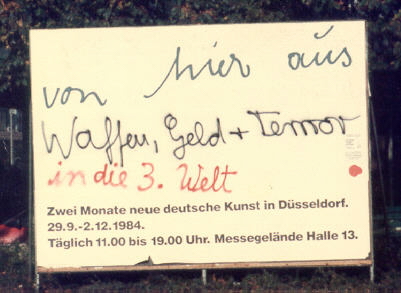 von hier aus
Waffen, Geld + Terror
in die 3. Welt
Zwei Monate neue deutsche Kunst in Düsseldorf.
29.9.-2.12.1984.
Täglich 11.00 bis 19.00 Uhr. Messegelände Halle 13.